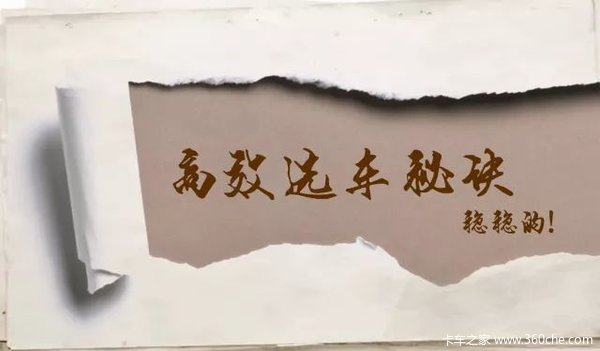 高效选车秘诀
稳稳的!
卡车之家 www.360che.com